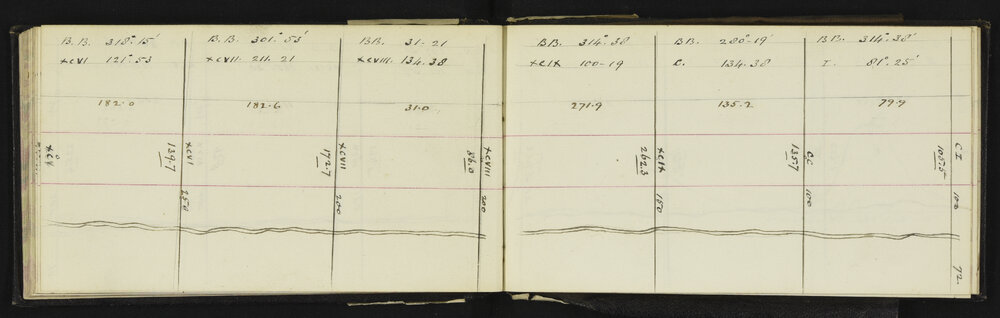 B.B. 318°.15'
XCVI 121°.53
182.0
B.B. 301°.53'
XCVII. 211.21
182.6
B.B. 31-21
XCVIII. 134.38
31.0
B.B. 314°.38
XCIX 100-19
271.9
B.B. 280°-19'
C. 134.38
135.2
B.B. 314°.38'
I. 81°.25'
79.9
XCV
XCVI
139.7
250
XCVII
172.7
200
XCVIII
86.0
200
XCIX
262.3
150
C.C
135.7
100
C I
107.5
100
72